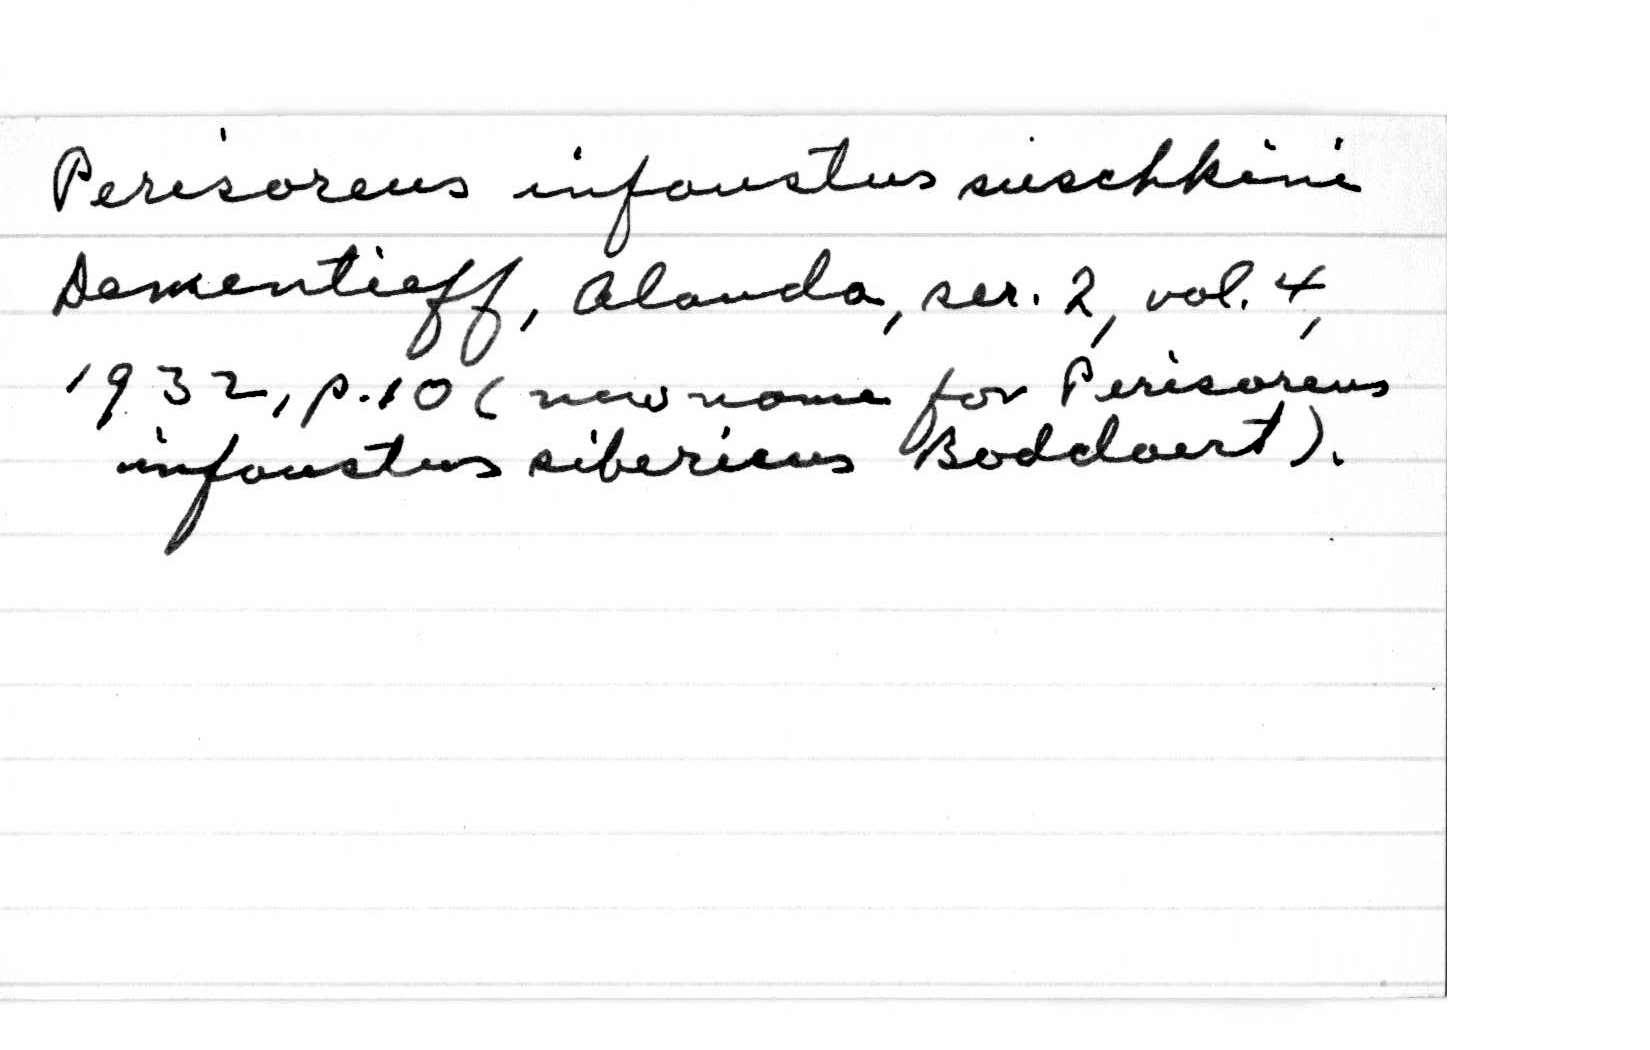 Perisoreus infaustus suschkini
Dementieff, Alauda, ser. 2, vol. 4,
1932, p. 10 (new name for Perisoreus
infaustus sibericus Boddaert).